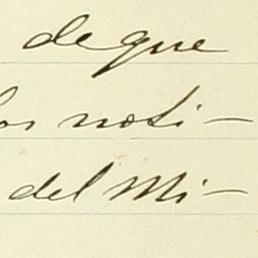 de que
los noti-
del Mi-